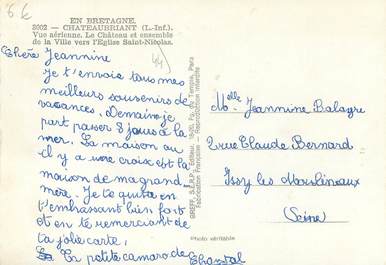 6 6
EN BRETAGNE.
3002 - CHATEAUBRIANT (L.-Inf.).
Vue aérienne. Le Château et ensemble
de la Ville vers l'Eglise Saint-Nicolas.
44
Chère Jeannine
Je t'envoie tous mes
meilleurs souvenirs de
vacances. Demain je
part passer 8 jours à la
mer. La maison ou
il y a une croix est la
maison de ma grand-
mère. Je te quitte en
t'embrassant bien fort
et en te remerciant de
ta jolie carte,
ta petite camarade
Chantal
GREFF, S.E.R.P., Éditeur, Fg. du Temple, Paris
Fabrication Française - Reproduction interdite
Photo véritable
Melle Jeannine Balayre
2 rue Claude Bernard
Issy les Moulineaux
Seine